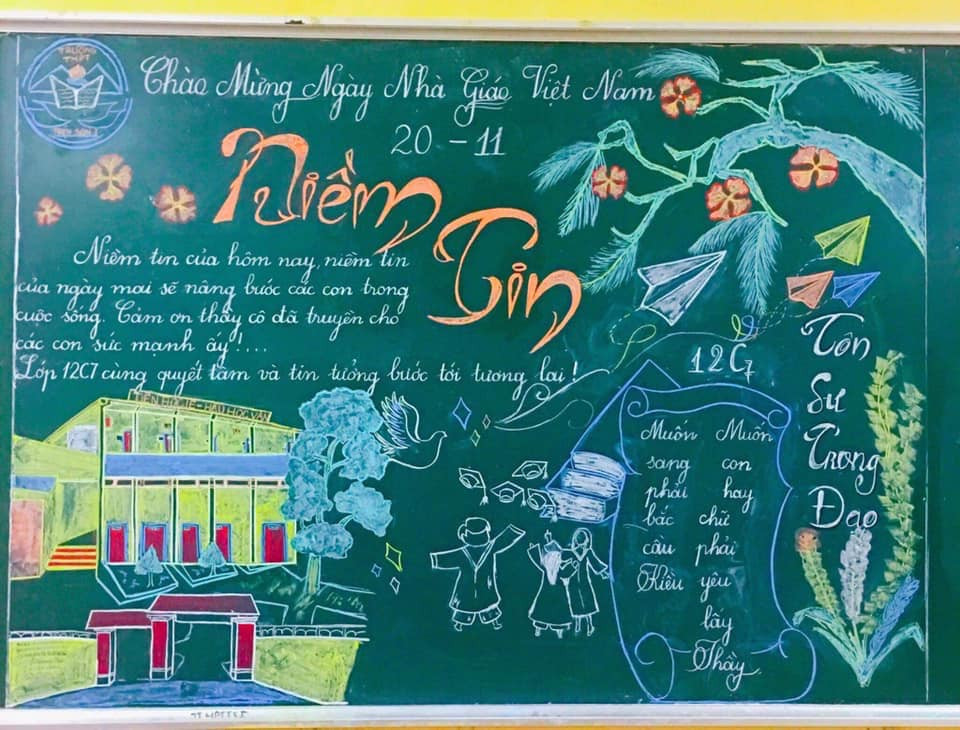 TRƯỜNG
THPT
TIÊN SƠN 1
Chào Mừng Ngày Nhà Giáo Việt Nam
20 - 11
Niềm
Tin
Niềm tin của hôm nay, niềm tin
của ngày mai sẽ nâng bước các con trong
cuộc sống. Cảm ơn thầy cô đã truyền cho
các con sức mạnh ấy!....
Lớp 12C7 cùng quyết tâm và tin tưởng bước tới tương lai!
TIÊN HỌC LỄ - HẬU HỌC VĂN
12C7
Muốn
sang
phải
bắc
cầu
Kiều
Muốn
con
hay
chữ
phải
yêu
lấy
Thầy
Tôn
Sư
Trọng
Đạo